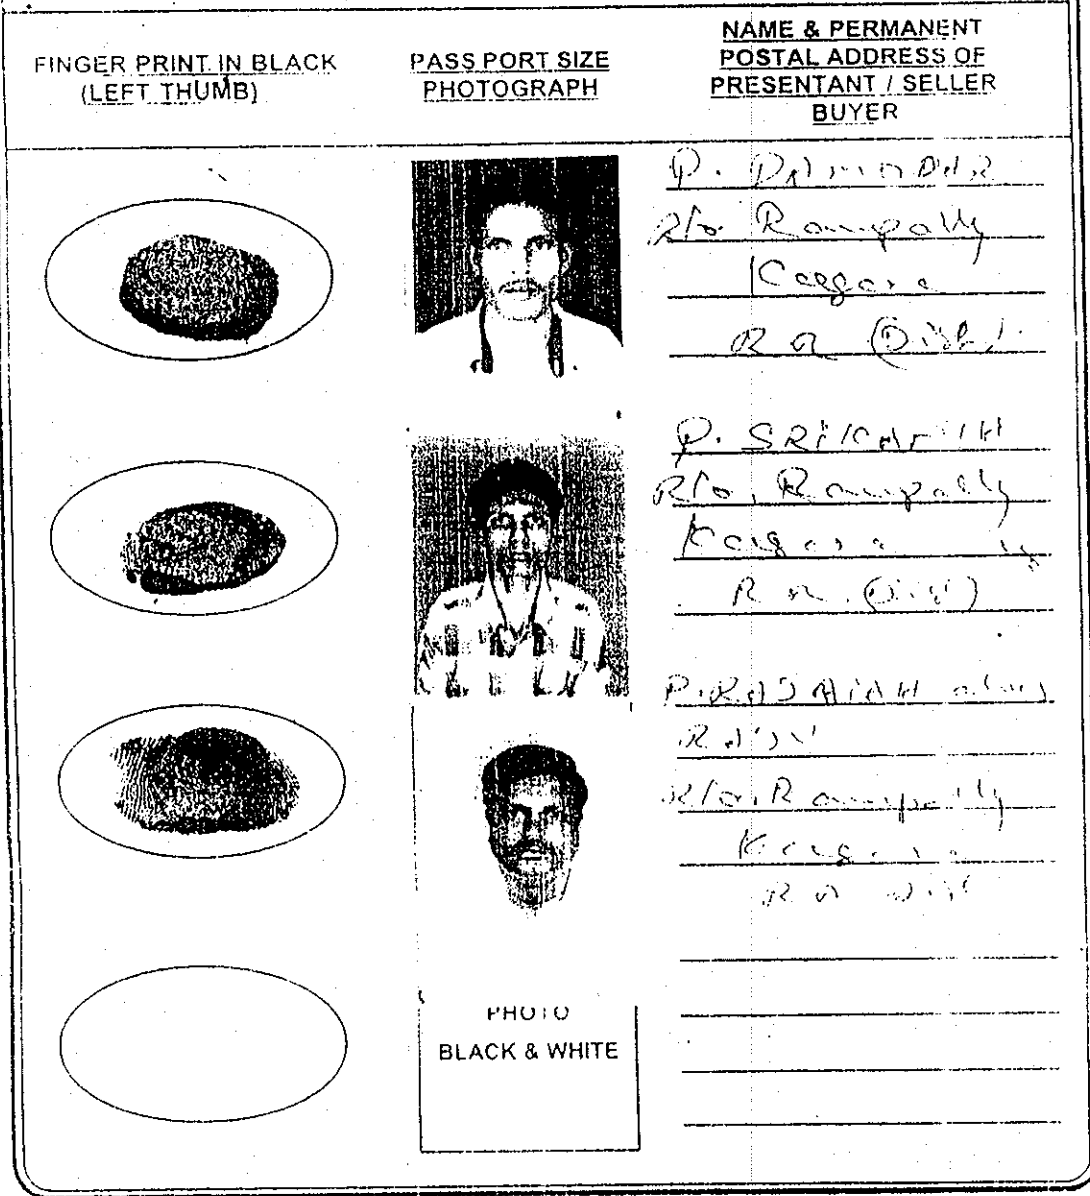 FINGER PRINT IN BLACK
(LEFT THUMB)
PASS PORT SIZE
PHOTOGRAPH
NAME & PERMANENT
POSTAL ADDRESS OF
PRESENTANT / SELLER
BUYER
P. DAMODAR
R/o Rampally
R R (Dist).
P. SRIKANTH
R/o. Rampally
R R (Dist)
P. RAJAIAH alias
R/o. Rampally
R R Dist
PHOTO
BLACK & WHITE